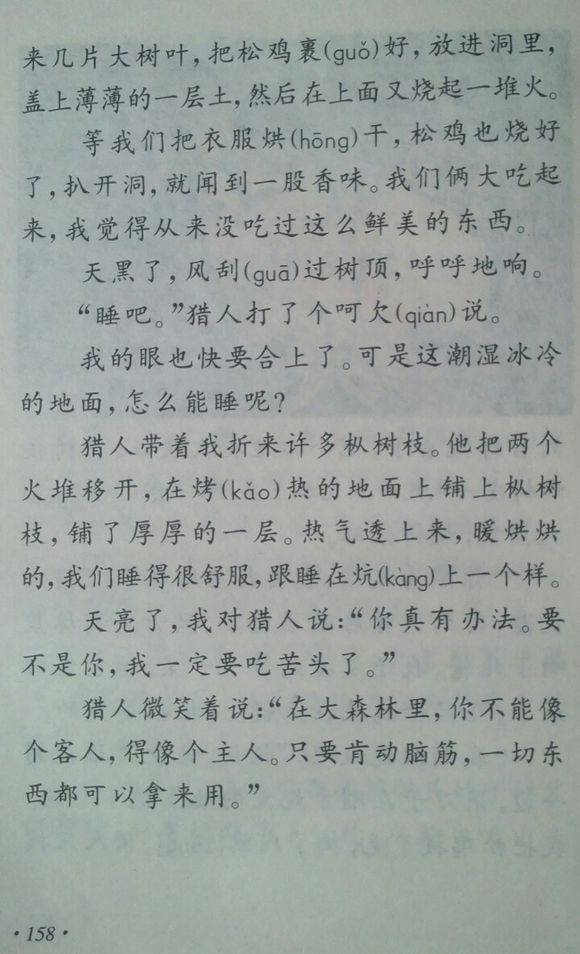 来几片大树叶，把松鸡裹(guǒ)好，放进洞里，
盖上薄薄的一层土，然后在上面又烧起一堆火。
等我们把衣服烘(hōng)干，松鸡也烧好
了，扒开洞，就闻到一股香味。我们俩大吃起
来，我觉得从来没吃过这么鲜美的东西。
天黑了，风刮(guā)过树顶，呼呼地响。
“睡吧。”猎人打了个呵欠(qiàn)说。
我的眼也快要合上了。可是这潮湿冰冷
的地面，怎么能睡呢？
猎人带着我折来许多枞树枝。他把两个
火堆移开，在烤(kǎo)热的地面上铺上枞树
枝，铺了厚厚的一层。热气透上来，暖烘烘
的，我们睡得很舒服，跟睡在炕(kàng)上一个样。
天亮了，我对猎人说：“你真有办法。要
不是你，我一定要吃苦头了。”
猎人微笑着说：“在大森林里，你不能像
个客人，得像个主人。只要肯动脑筋，一切东
西都可以拿来用。”
·158·